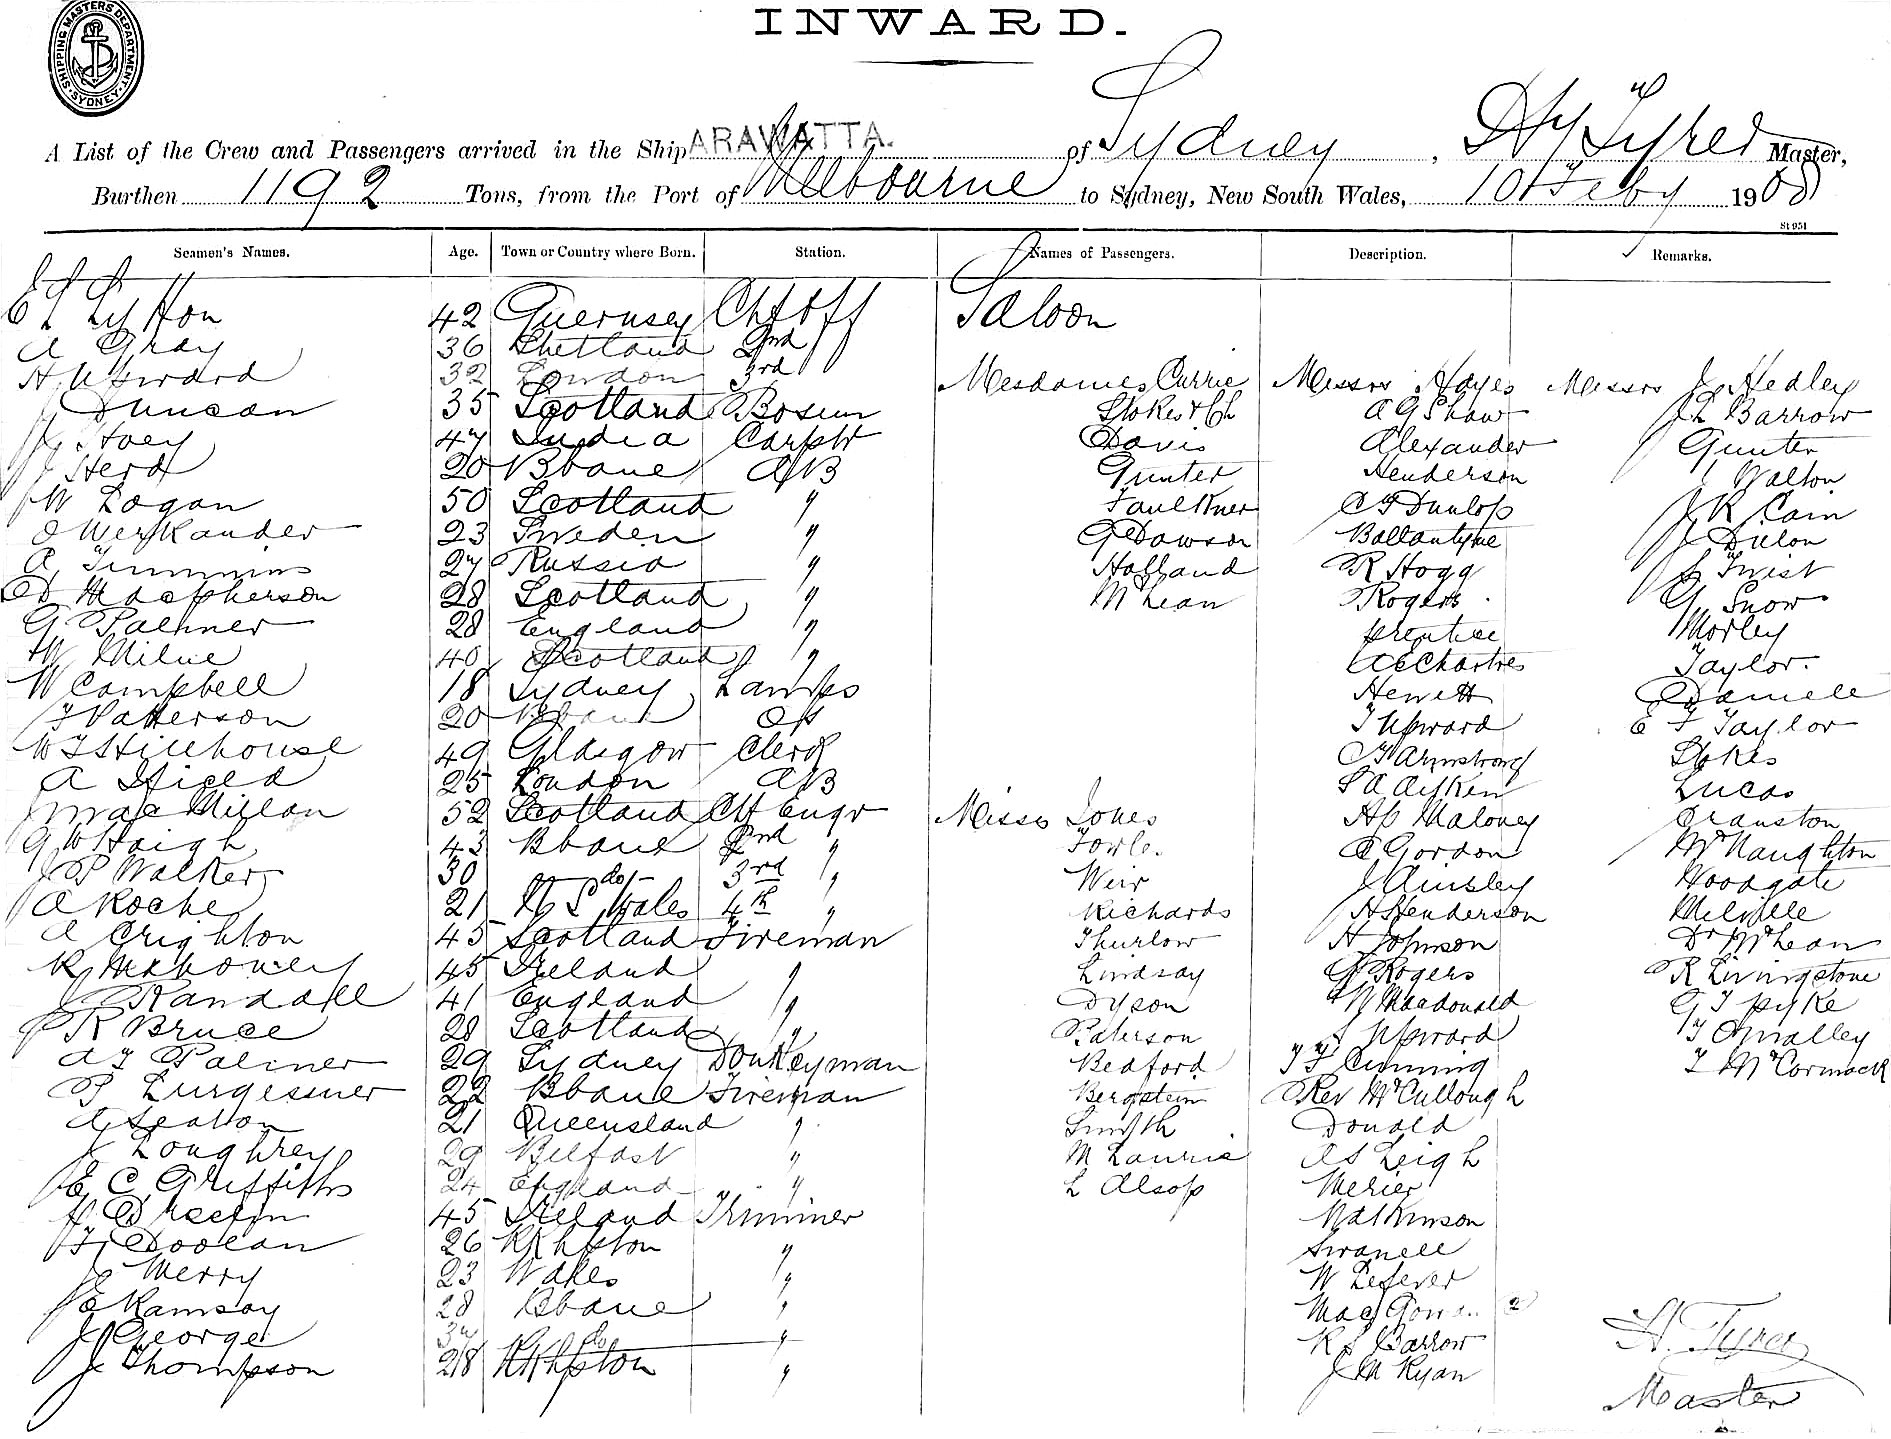 INWARD.
SHIPPING MASTERS DEPARTMENT. SYDNEY.
A List of the Crew and Passengers arrived in the Ship ARAWATTA. of Sydney, Hy Tyrer Master,
Burthen 1192 Tons, from the Port of Melbourne to Sydney, New South Wales, 10 Feby 1908
St 951
Seamen's Names. Age. Town or Country where Born. Station. Names of Passengers. Description. Remarks.
42 Guernsey Ch Off Saloon
A Gray 36 Shetland 2nd
H Upward 32 London 3rd Mesdames Currie Messrs Hayes Messrs J Hedley
J Duncan 35 Scotland Bosun Stokes & Ch A G Shaw J L Barrow
J Hoey 47 India Carptr Davis Alexander Gunter
J Herd 20 Bbane AB Gunter Henderson J Walton
W Logan 50 Scotland " Faulkner Dunlop J K Cain
23 Sweden " G Dawson Ballantyne J Dillon
A Timmins 27 Russia " Holland R Hogg Twist
D Macpherson 28 Scotland " McLean Rogers G Snow
G Palmer 28 England " Prentice Morley
W Milne 40 Scotland " Chartres Taylor.
W Campbell 18 Sydney Lamps Hewett Daniell
J Patterson 20 Bbane OS T Upward E F Taylor
W J Stillhouse 49 Glasgow Clerk Armstrong Stokes
A Hield 25 London AB S A Aitken Lucas
J MacMillan 52 Scotland Ch Engr Misses Jones Maloney Cranston
G W Haigh 43 Bbane 2nd " Fowle. Gordon McNaughton
J P Walker 30 do 3rd " Weir J Ainsley Woodgate
A Roche 21 N S Wales 4th " Richards A Henderson Melville
A Crighton 45 Scotland Fireman Thurlow H Johnson Dr McLean
R McMahoney 45 Ireland " Lindsay G Rogers R Livingstone
J Randall 41 England " Dyson W Macdonald G T Pyke
R Bruce 28 Scotland " Paterson S Upward T Omalley
A J Palmer 29 Sydney Donkeyman Bedford J F Cumming T McCormack
P Lurgessner 22 Bbane Fireman Bergstein Rev McCullough
A Seaton 21 Queensland " Smyth Donald
J Loughrey 29 Belfast " M Laurie A S Leigh
E C Griffiths 24 England " L Alsop Merier
45 Ireland Trimmer Watkinson
T Doolan 26 Rkhpton " Swanell
J Merry 23 Wales " W Lefever
E Ramsay 28 Bbane " MacGowan (2)
J George do " R S Barrow H. Tyrer
J Thompson 28 Rkhpton " J M Ryan Master